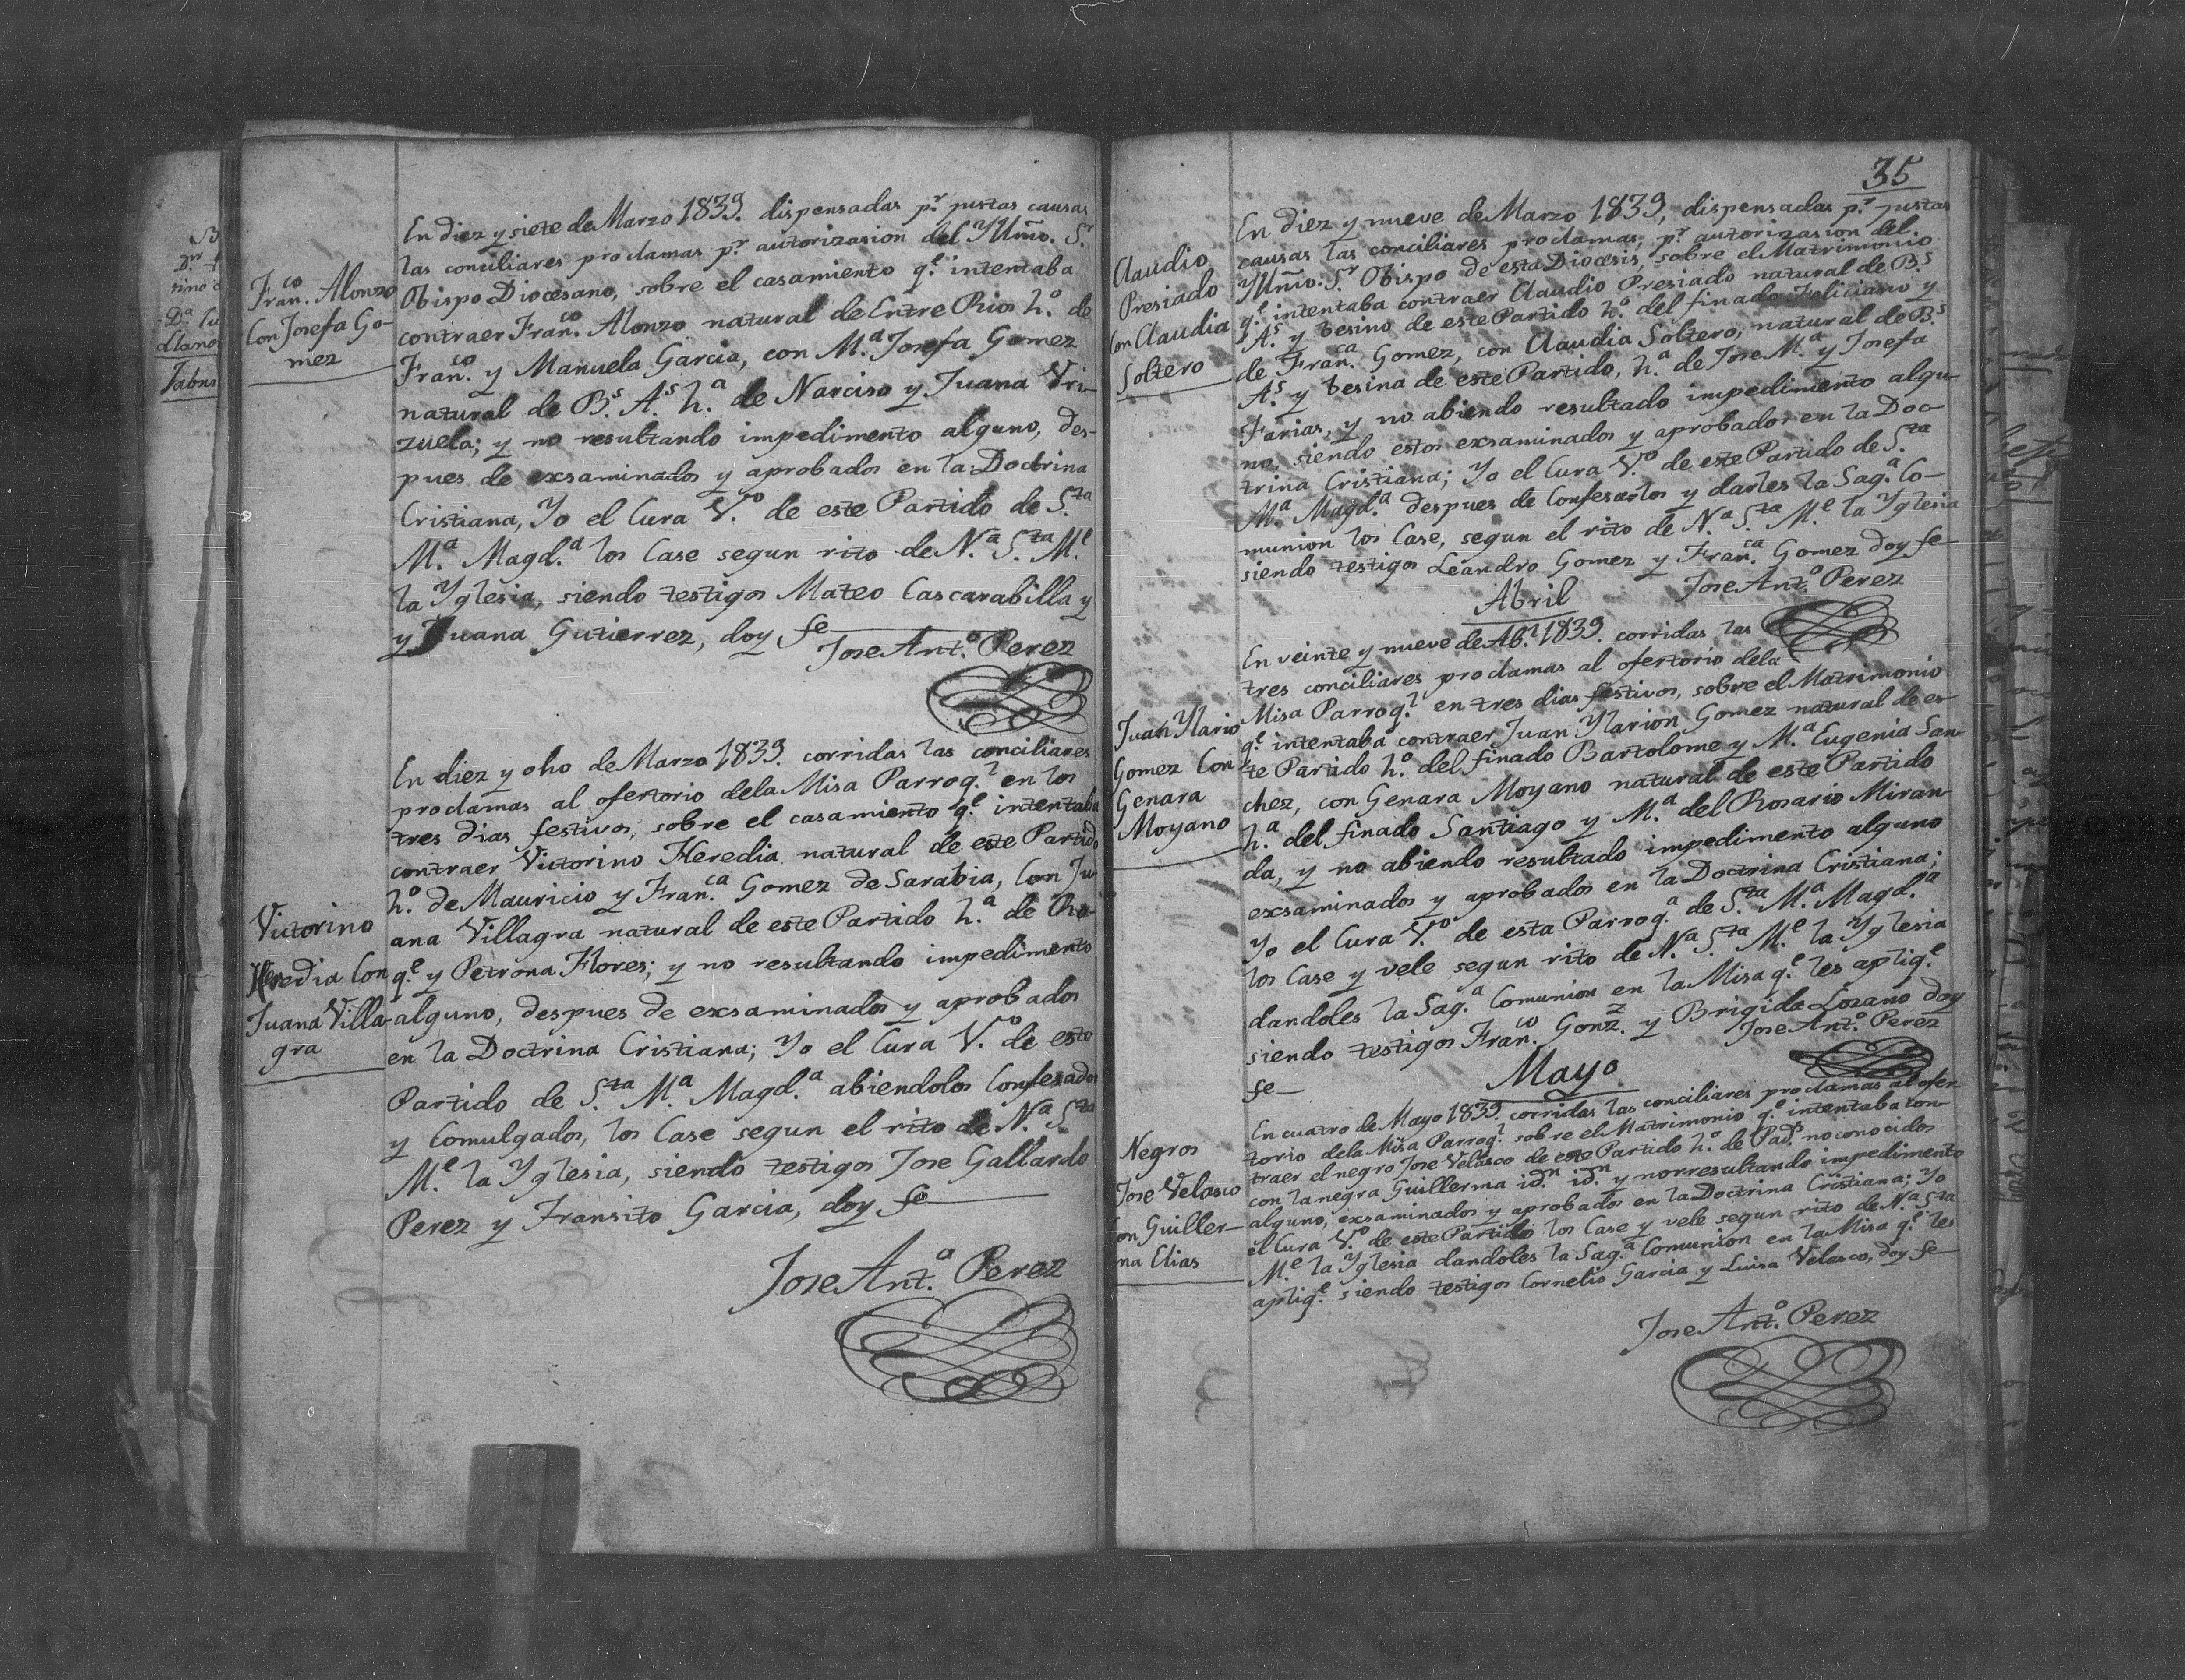 Fran.co Alonzo
Con Josefa Go-
mez
En diez y siete de Marzo 1839. dispensadas p.r justas causas
las conciliares proclamas p.r autorizasion del Yllmo. S.r
Obispo Diocesano, sobre el casamiento q.e intentaba
contraer Fran.co Alonzo natural de Entre Rios h.o de
Fran.co y Manuela Garcia, con M.a Josefa Gomez
natural de B.s A.s h.a de Narciso y Juana Vri-
zuela; y no resultando impedimento alguno, des-
pues de exsaminados y aprobados en la Doctrina
Cristiana, Yo el Cura V.o de este Partido de S.ta
M.a Magd.a los Case segun rito de N.a S.ta M.e
la Yglesia, siendo testigos Mateo Cascarabilla y
y Juana Gutierrez, doy fe
Jose Ant.o Perez
Victorino
Heredia Con
Juana Villa-
gra
En diez y oho de Marzo 1839. corridas las conciliares
proclamas al ofertorio dela Misa Parroq.l en los
tres dias festivos, sobre el casamiento q.e intentaba
contraer Victorino Heredia natural de este Partido
h.o de Mauricio y Fran.ca Gomez de Sarabia, Con Ju-
ana Villagra natural de este Partido h.a de Ro-
q.e y Petrona Flores; y no resultando impedimento
alguno, despues de exsaminados y aprobados
en la Doctrina Cristiana; Yo el Cura V.o de este
Partido de S.ta M.a Magd.a abiendolos Confesados
y Comulgados, los Case segun el rito de N.a S.ta
M.e la Yglesia, siendo testigos Jose Gallardo
Perez y Fransito Garcia, doy fe
Jose Ant.o Perez
35
Claudio
Presiado
Con Claudia
Soltero
En diez y nueve de Marzo 1839, dispensadas p.r justas
causas las conciliares proclamas, p.r autorizasion del
Yllmo. S.r Obispo de esta Diocesis, sobre el Matrimonio
q.e intentaba contraer Claudio Presiado natural de B.s
A.s y besino de este Partido h.o del finado Feliciano y
de Fran.ca Gomez, con Claudia Soltero, natural de B.s
A.s y besina de este Partido, h.a de Jose M.a y Josefa
Farias, y no abiendo resultado impedimento algu-
no, siendo estos exsaminados y aprobados en la Doc-
trina Cristiana; Yo el Cura V.o de este Partido de S.ta
M.a Magd.a despues de Confesarlos y darles la Sag.a Co-
munion los Case, segun el rito de N.a S.ta M.e la Yglesia
siendo testigos Leandro Gomez y Fran.ca Gomez doy fe
Jose Ant.o Perez
Abril
Juan Ylario
Gomez Con
Genara
Moyano
En veinte y nueve de Ab.l 1839. corridas las
tres conciliares proclamas al ofertorio dela
Misa Parroq.l en tres dias festivos, sobre el Matrimonio
q.e intentaba contraer Juan Ylarion Gomez natural de es-
te Partido h.o del finado Bartolome y M.a Eugenia San-
chez, con Genara Moyano natural de este Partido
h.a del finado Santiago y M.a del Rosario Miran-
da, y no abiendo resultado impedimento alguno
exsaminados y aprobados en la Doctrina Cristiana;
Yo el Cura V.o de esta Parroq.a de S.ta M.a Magd.a
los Case y vele segun rito de N.a S.ta M.e la Yglesia
dandoles la Sag.a Comunion en la Misa q.e les apliq.e
siendo testigos Fran.co Gonz.z y Brigida Lozano doy
fe
Jose Ant.o Perez
Mayo
Negros
Jose Velasco
Con Guiller-
ma Elias
En cuatro de Mayo 1839. corridas las conciliares proclamas al ofer-
torio dela Misa Parroq.l sobre el Matrimonio q.e intentaba con-
traer el negro Jose Velasco de este Partido h.o de Pad.s no conocidos
con la negra Guillerma id.n id.n y norresultando impedimento
alguno, exsaminados y aprobados en la Doctrina Cristiana; Yo
el Cura V.o de este Partido los Case y vele segun rito de N.a S.ta
M.e la Yglesia dandoles la Sag.a Comunion en la Misa q.e les
apliq.e siendo testigos Cornelio Garcia y Luisa Velasco, doy fe
Jose Ant.o Perez